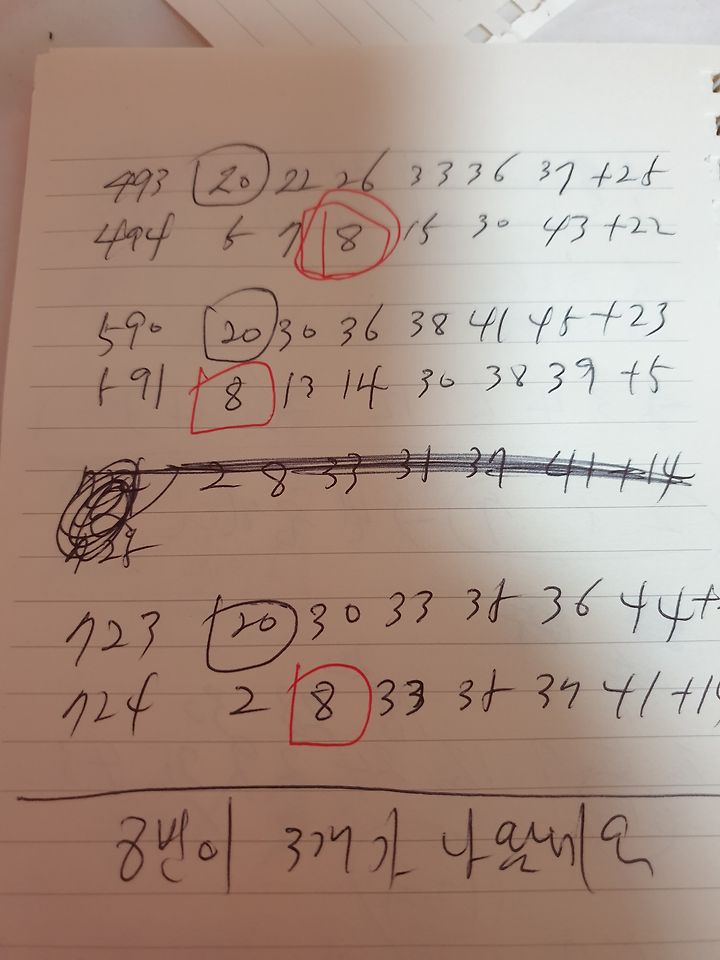 493 20 22 26 33 36 37 +25
494 5 7 8 15 30 43 +22
590 20 30 36 38 41 45 +23
591 8 13 14 30 38 39 +5
2 8 33 35 37 41 +14
723 20 30 33 35 36 44 +
724 2 8 33 35 37 41 +14
8번이 3개가 나왔네요